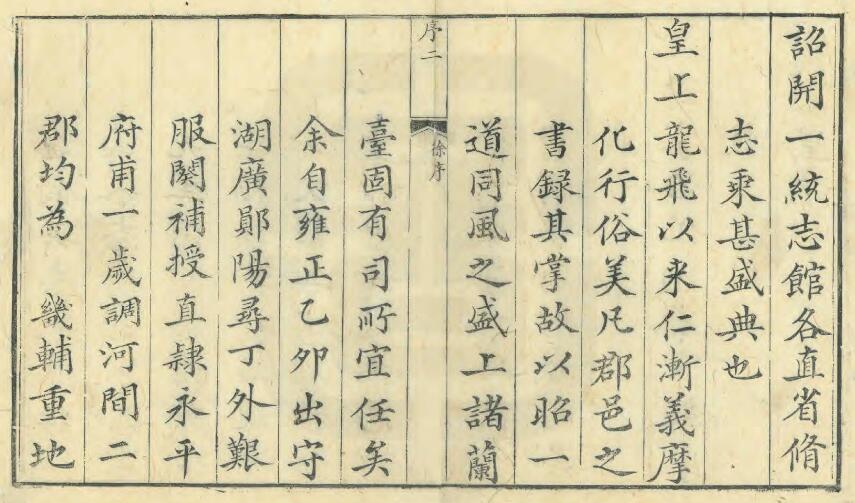 詔開一統志館各直省脩
志乘甚盛典也
皇上龍飛以来仁漸義摩
化行俗美凡郡邑之
書録其掌故以昭一
道同風之盛上諸蘭
序二
徐序
臺固有司所宜任矣
余自雍正乙卯出守
湖廣鄖陽尋丁外艱
服闋補授直隸永平
府甫一歲調河間二
郡均為 畿輔重地